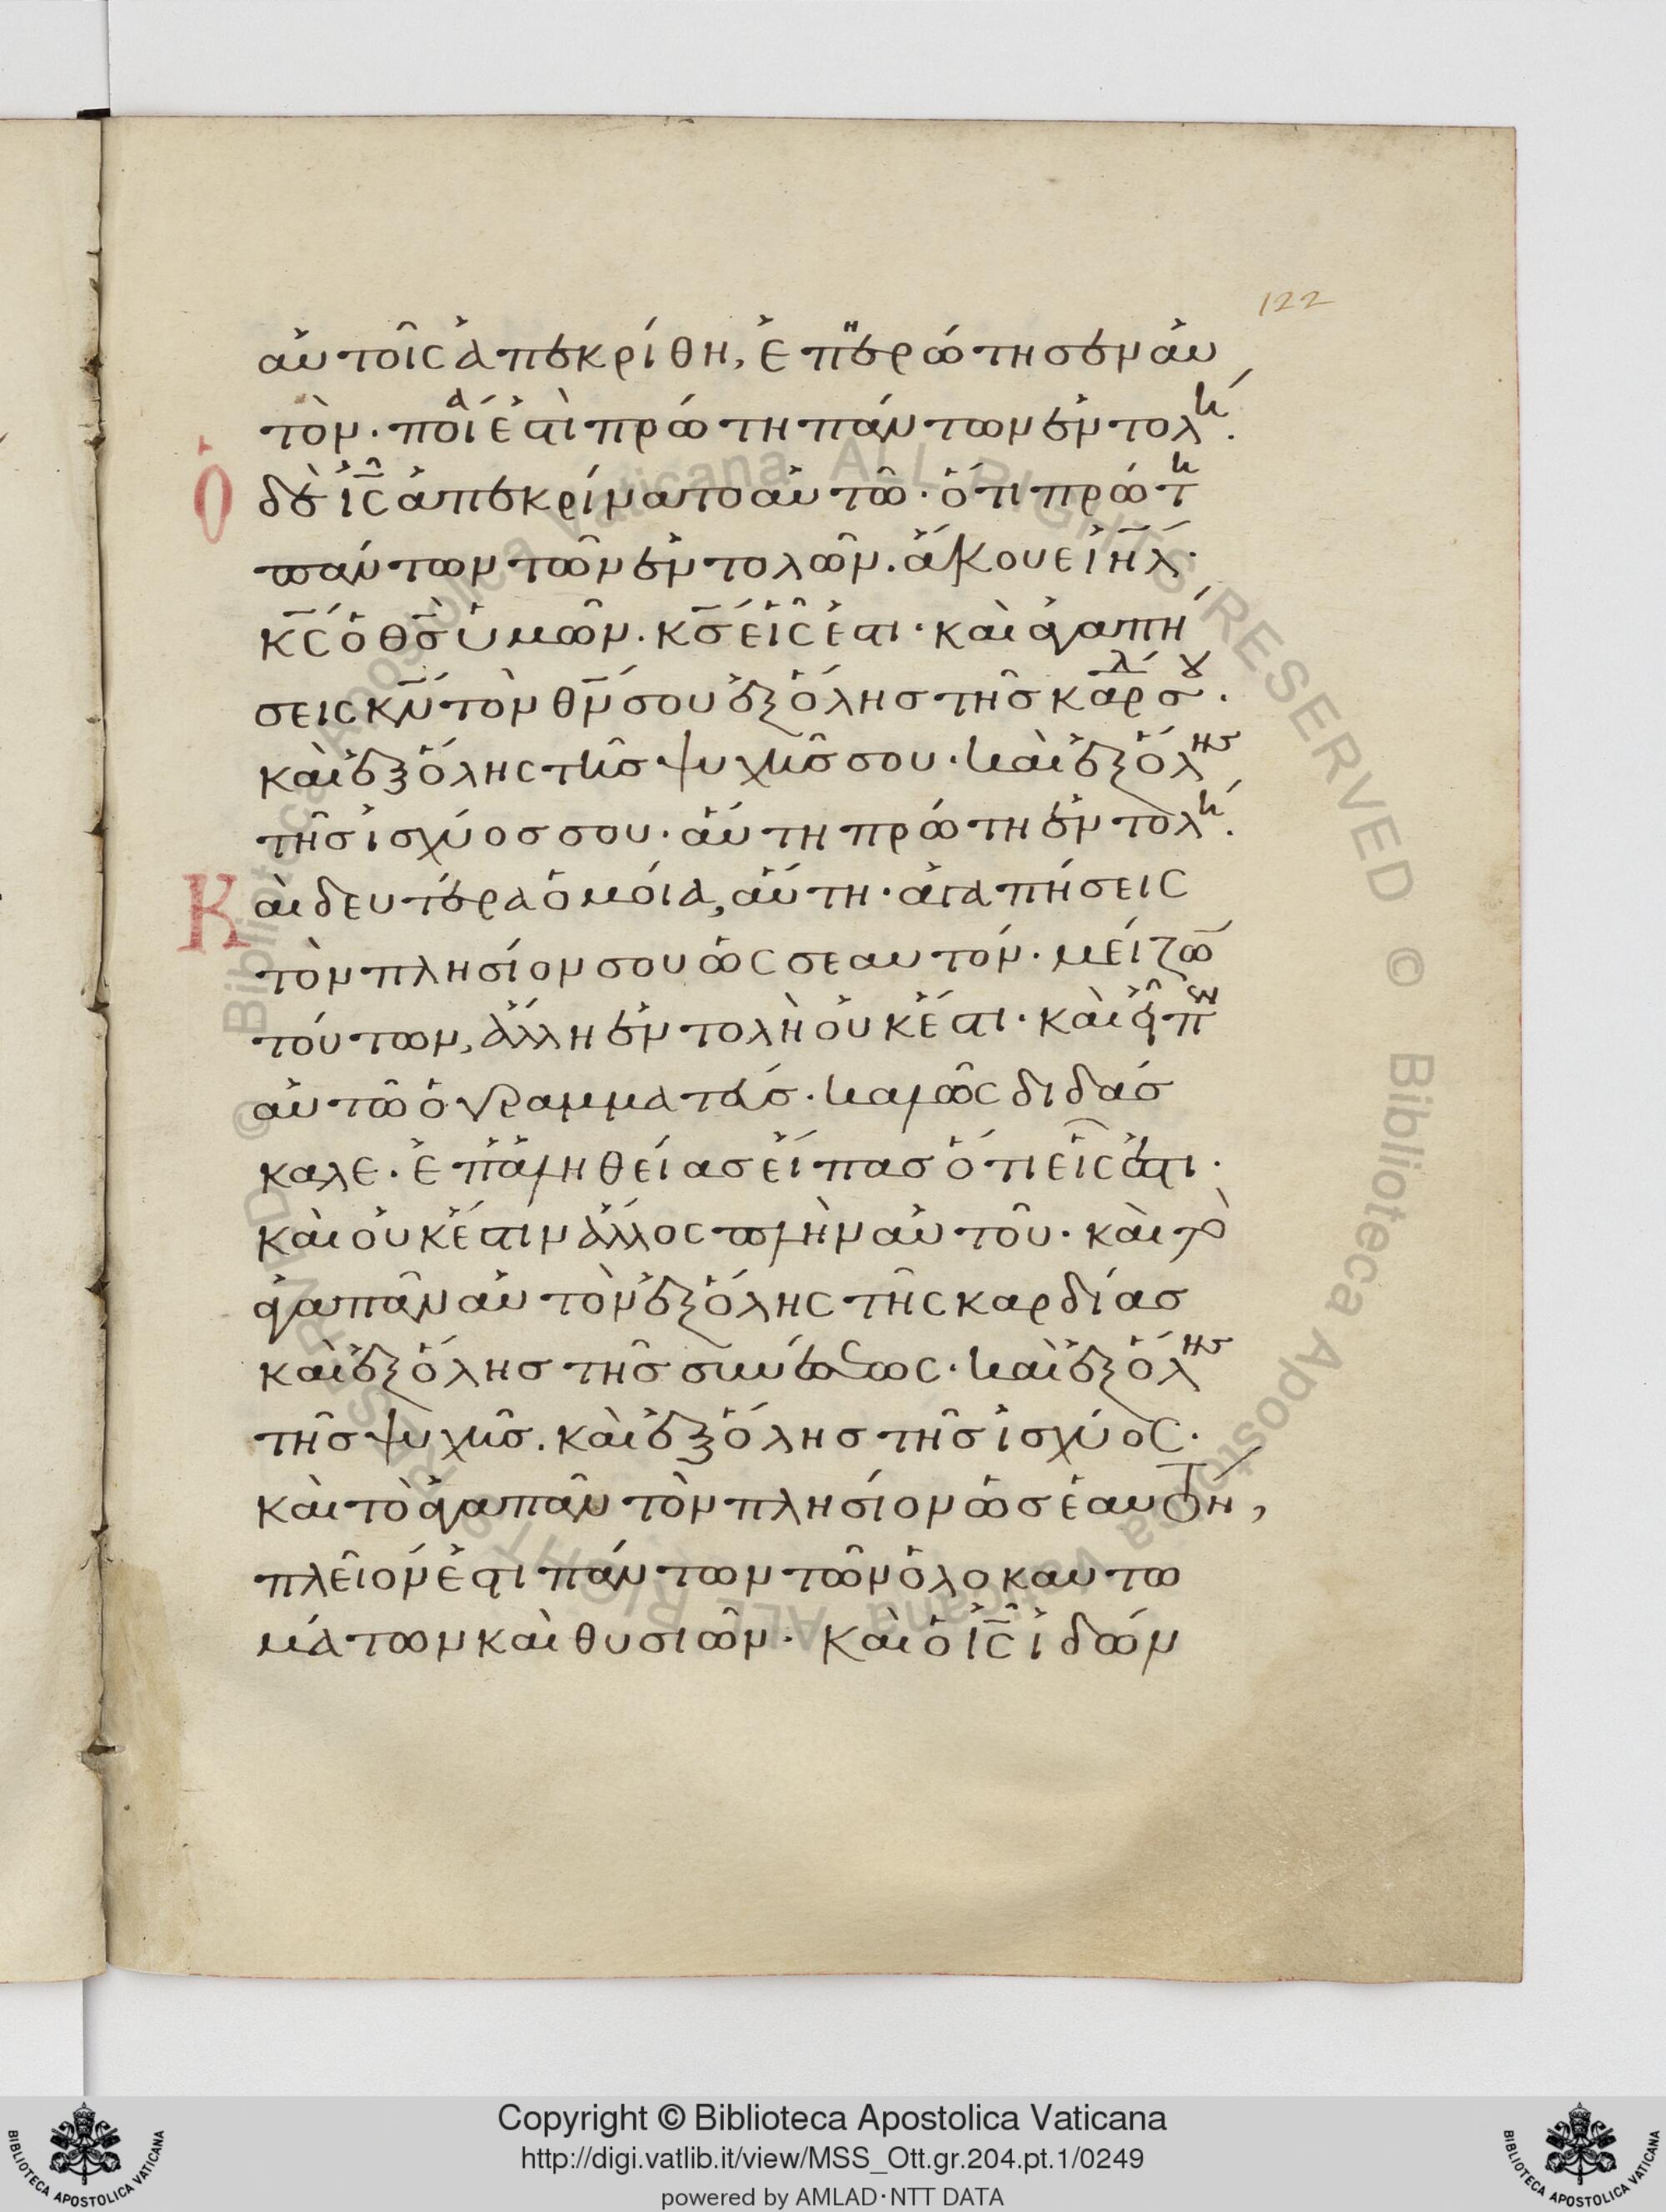 122
αὐτοῖς ἀπεκρίθη, ἐπηρώτησεν αὐ
τόν· ποία ἐστὶ πρώτη πάντων ἐντολή.
Ὁ
δὲ ις ἀπεκρίνατο αὐτῶ· ὅτι πρώτη
πάντων τῶν ἐντολῶν. ἄκουε ιηλ·
κς ὁ θς ὑμῶν. κς εἷς ἐστι· καὶ ἀγαπή
σεις κν τὸν θν σου ἐξ ὅλης τῆς καρδίας σου.
καὶ ἐξ ὅλης τῆς ψυχῆς σου. καὶ ἐξ ὅλης
τῆς ἰσχύος σου. αὕτη πρώτη ἐντολή.
Κ
αὶ δευτέρα ὁμοία, αὕτη· ἀγαπήσεις
τὸν πλησίον σου ὡς σεαυτόν. μείζω
τούτων, ἄλλη ἐντολὴ οὐκ ἔστι. καὶ εἶπεν
αὐτῶ ὁ γραμματεύς. καλῶς διδάσ
καλε. ἐπ ἀληθείας εἶπας ὅτι εἷς ἐστι.
καὶ οὐκ ἔστιν ἄλλος πλὴν αὐτοῦ. καὶ τὸ
ἀγαπᾶν αὐτὸν ἐξ ὅλης τῆς καρδίας
καὶ ἐξ ὅλης τῆς συνέσεως. καὶ ἐξ ὅλης
τῆς ψυχῆς. καὶ ἐξ ὅλης τῆς ἰσχύος.
καὶ τὸ ἀγαπᾶν τὸν πλησίον ὡς ἑαυτὸν,
πλεῖόν ἐστι πάντων τῶν ὁλοκαυτω
μάτων καὶ θυσιῶν. Καὶ ὁ ις ἰδὼν
© Biblioteca Apostolica Vaticana ALL RIGHTS RESERVED
© Biblioteca Apostolica Vaticana ALL RIGHTS RESERVED
Copyright © Biblioteca Apostolica Vaticana
http://digi.vatlib.it/view/MSS_Ott.gr.204.pt.1/0249
powered by AMLAD·NTT DATA
BIBLIOTECA APOSTOLICA VATICANA
BIBLIOTECA APOSTOLICA VATICANA